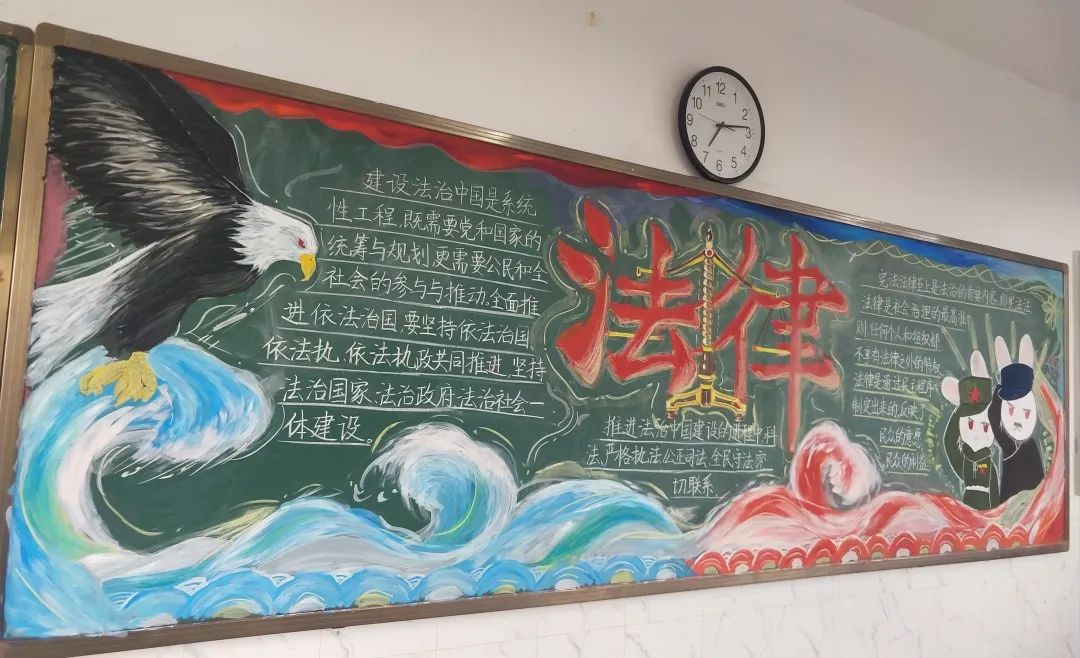 建设法治中国是系统
性工程,既需要党和国家的
统筹与规划,更需要公民和全
社会的参与与推动.全面推
进依法治国,要坚持依法治国、
依法执、依法执政共同推进,坚持
法治国家、法治政府、法治社会一
体建设。
法律
推进法治中国建设的进程中科
法、严格执法公正司法、全民守法密
切联系.
宪法法律至上是法治的首要内容,即宪法法
法律是社会治理的最高准
则,任何个人和组织都
不享有法律之外的特权
法律是通过民主程序
制定出来的反映了
民众的意愿
民众的利益
12
1
2
3
4
5
6
7
8
9
10
11
deli